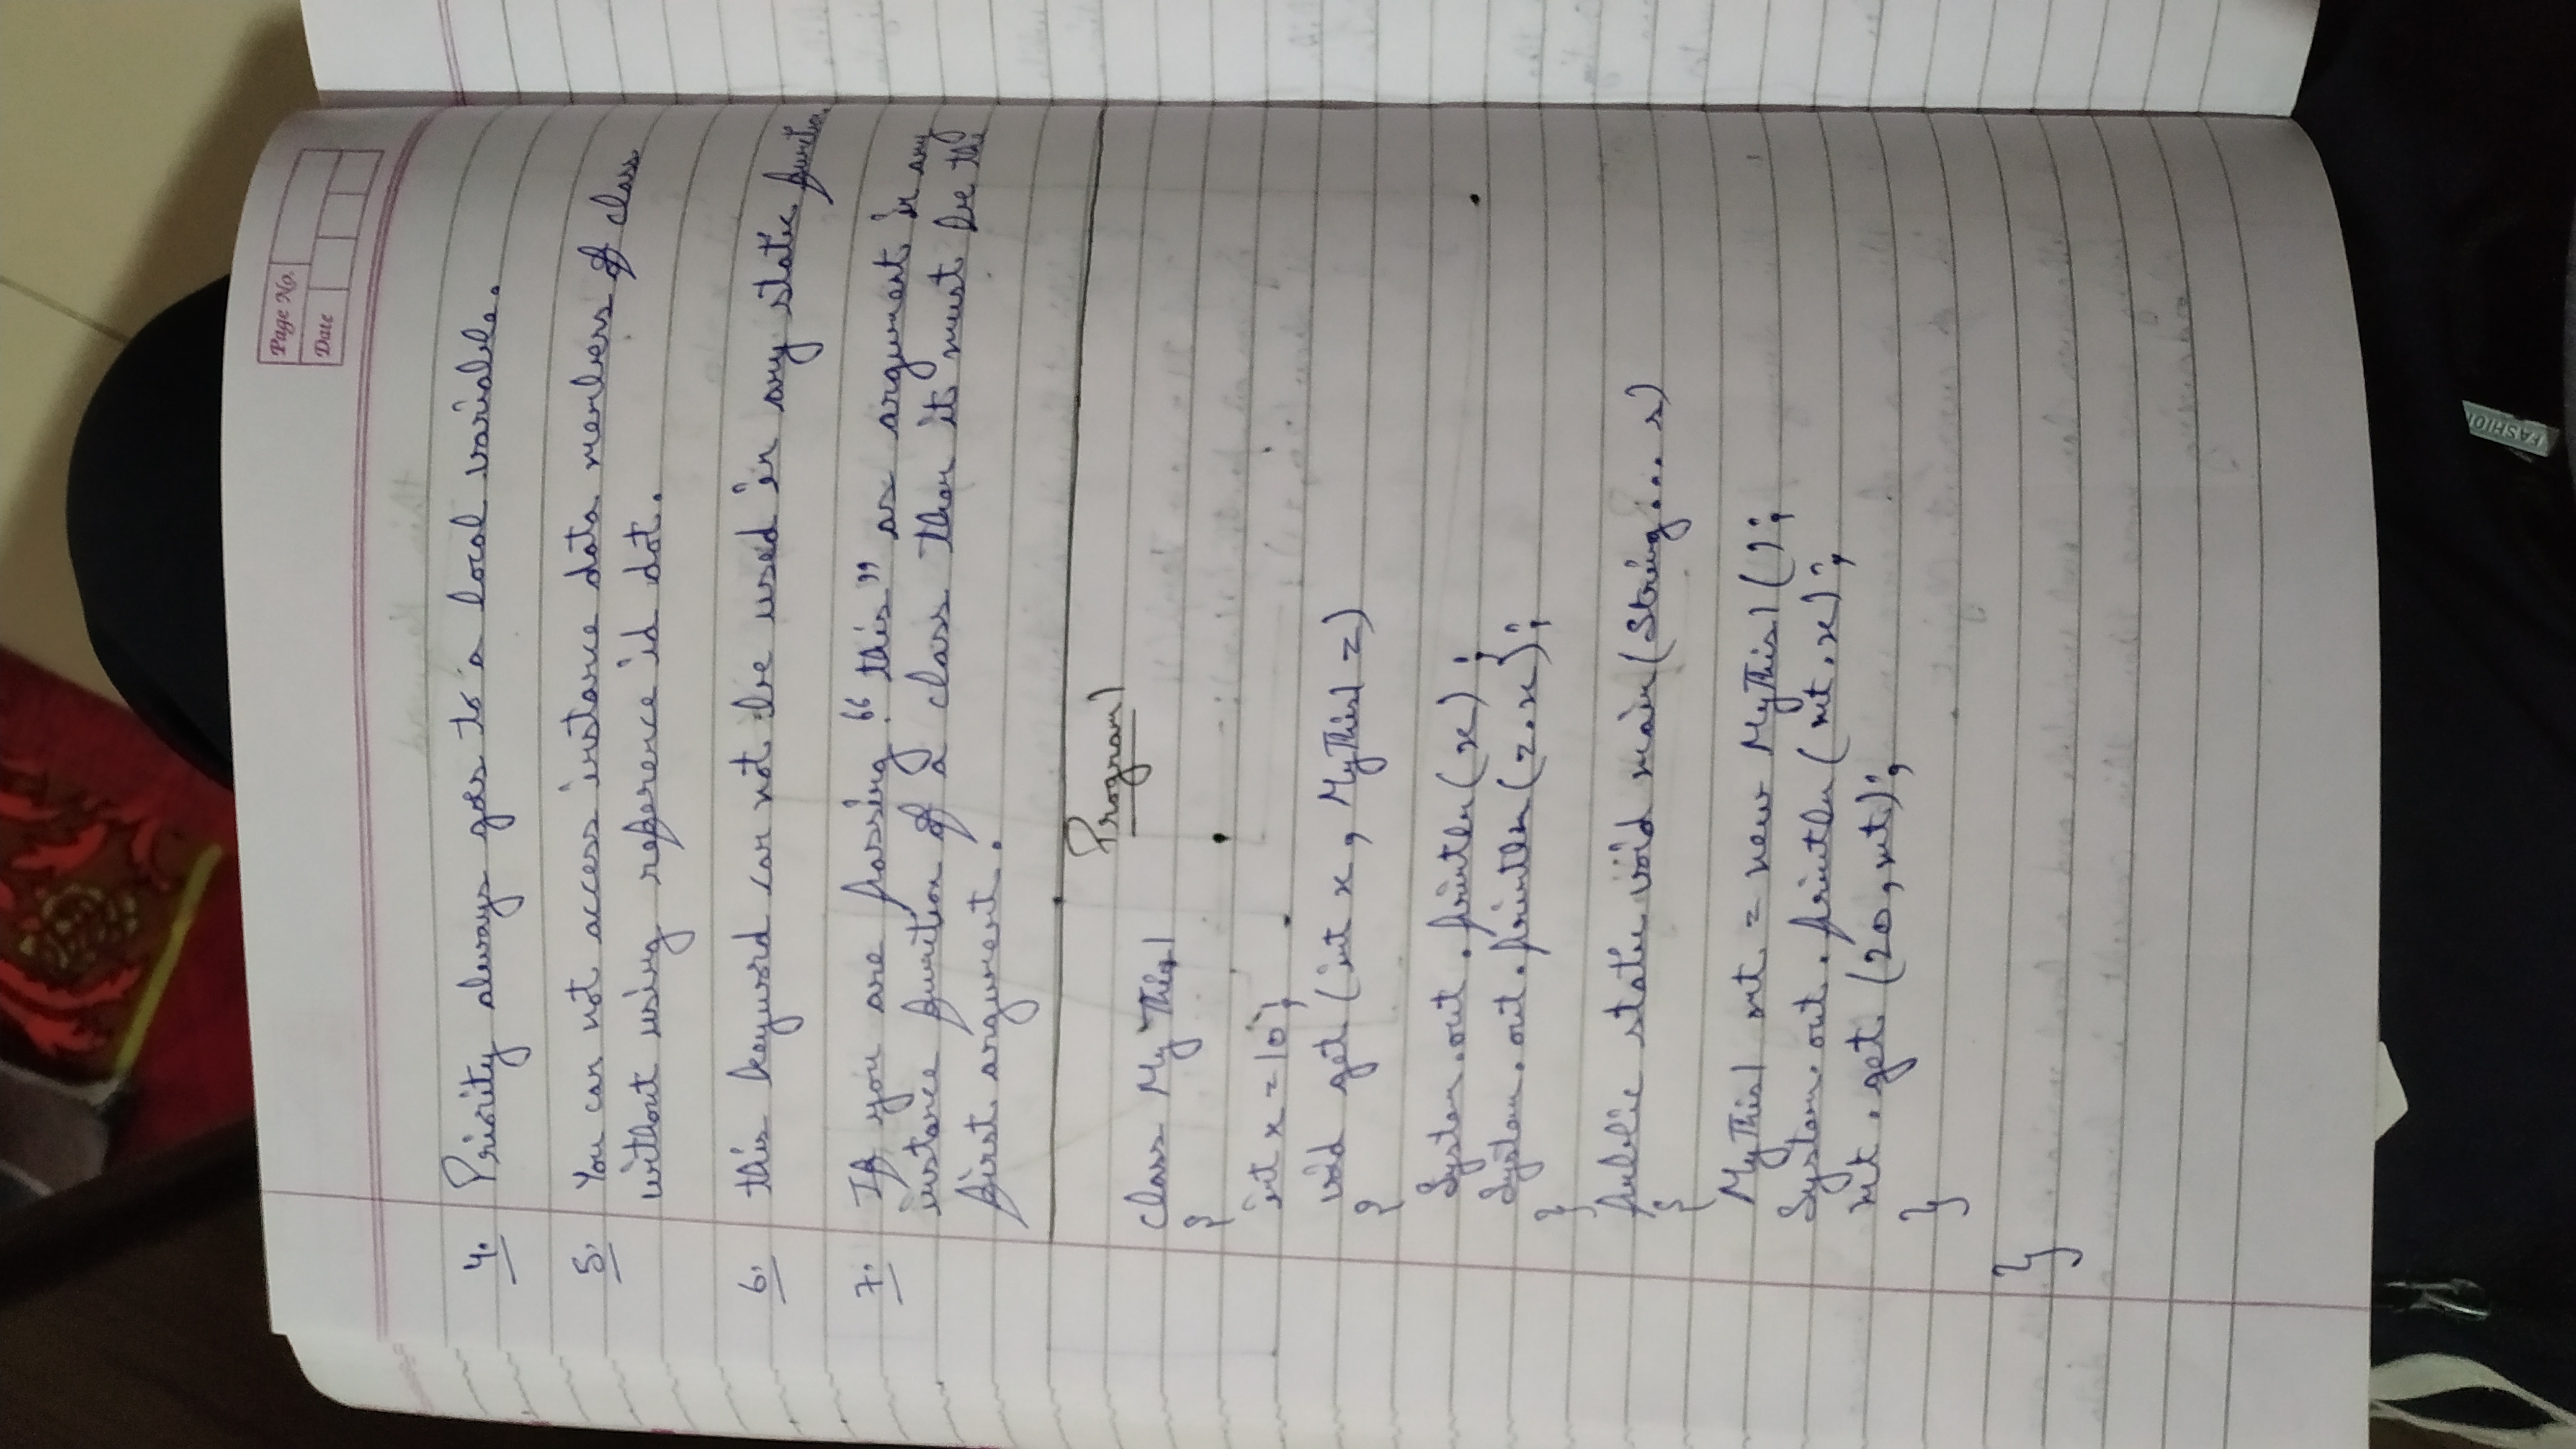 Page No.
Date
4. Priority always goes to a local variable.
5. You can not access instance data members of class
without using reference id dot.
6. this keyword can not be used in any static function.
7. If you are passing "this" as argument in any
instance function of a class then it must be the
first argument.
Program 1
class MyThis1
{
int x = 10;
void get (int x, MyThis1 z)
{
System.out.println(x);
System.out.println(z.x);
}
public static void main(String... s)
{
MyThis1 mt = new MyThis1();
System.out.println(mt.x);
mt.get (20, mt);
}
}
FASHION